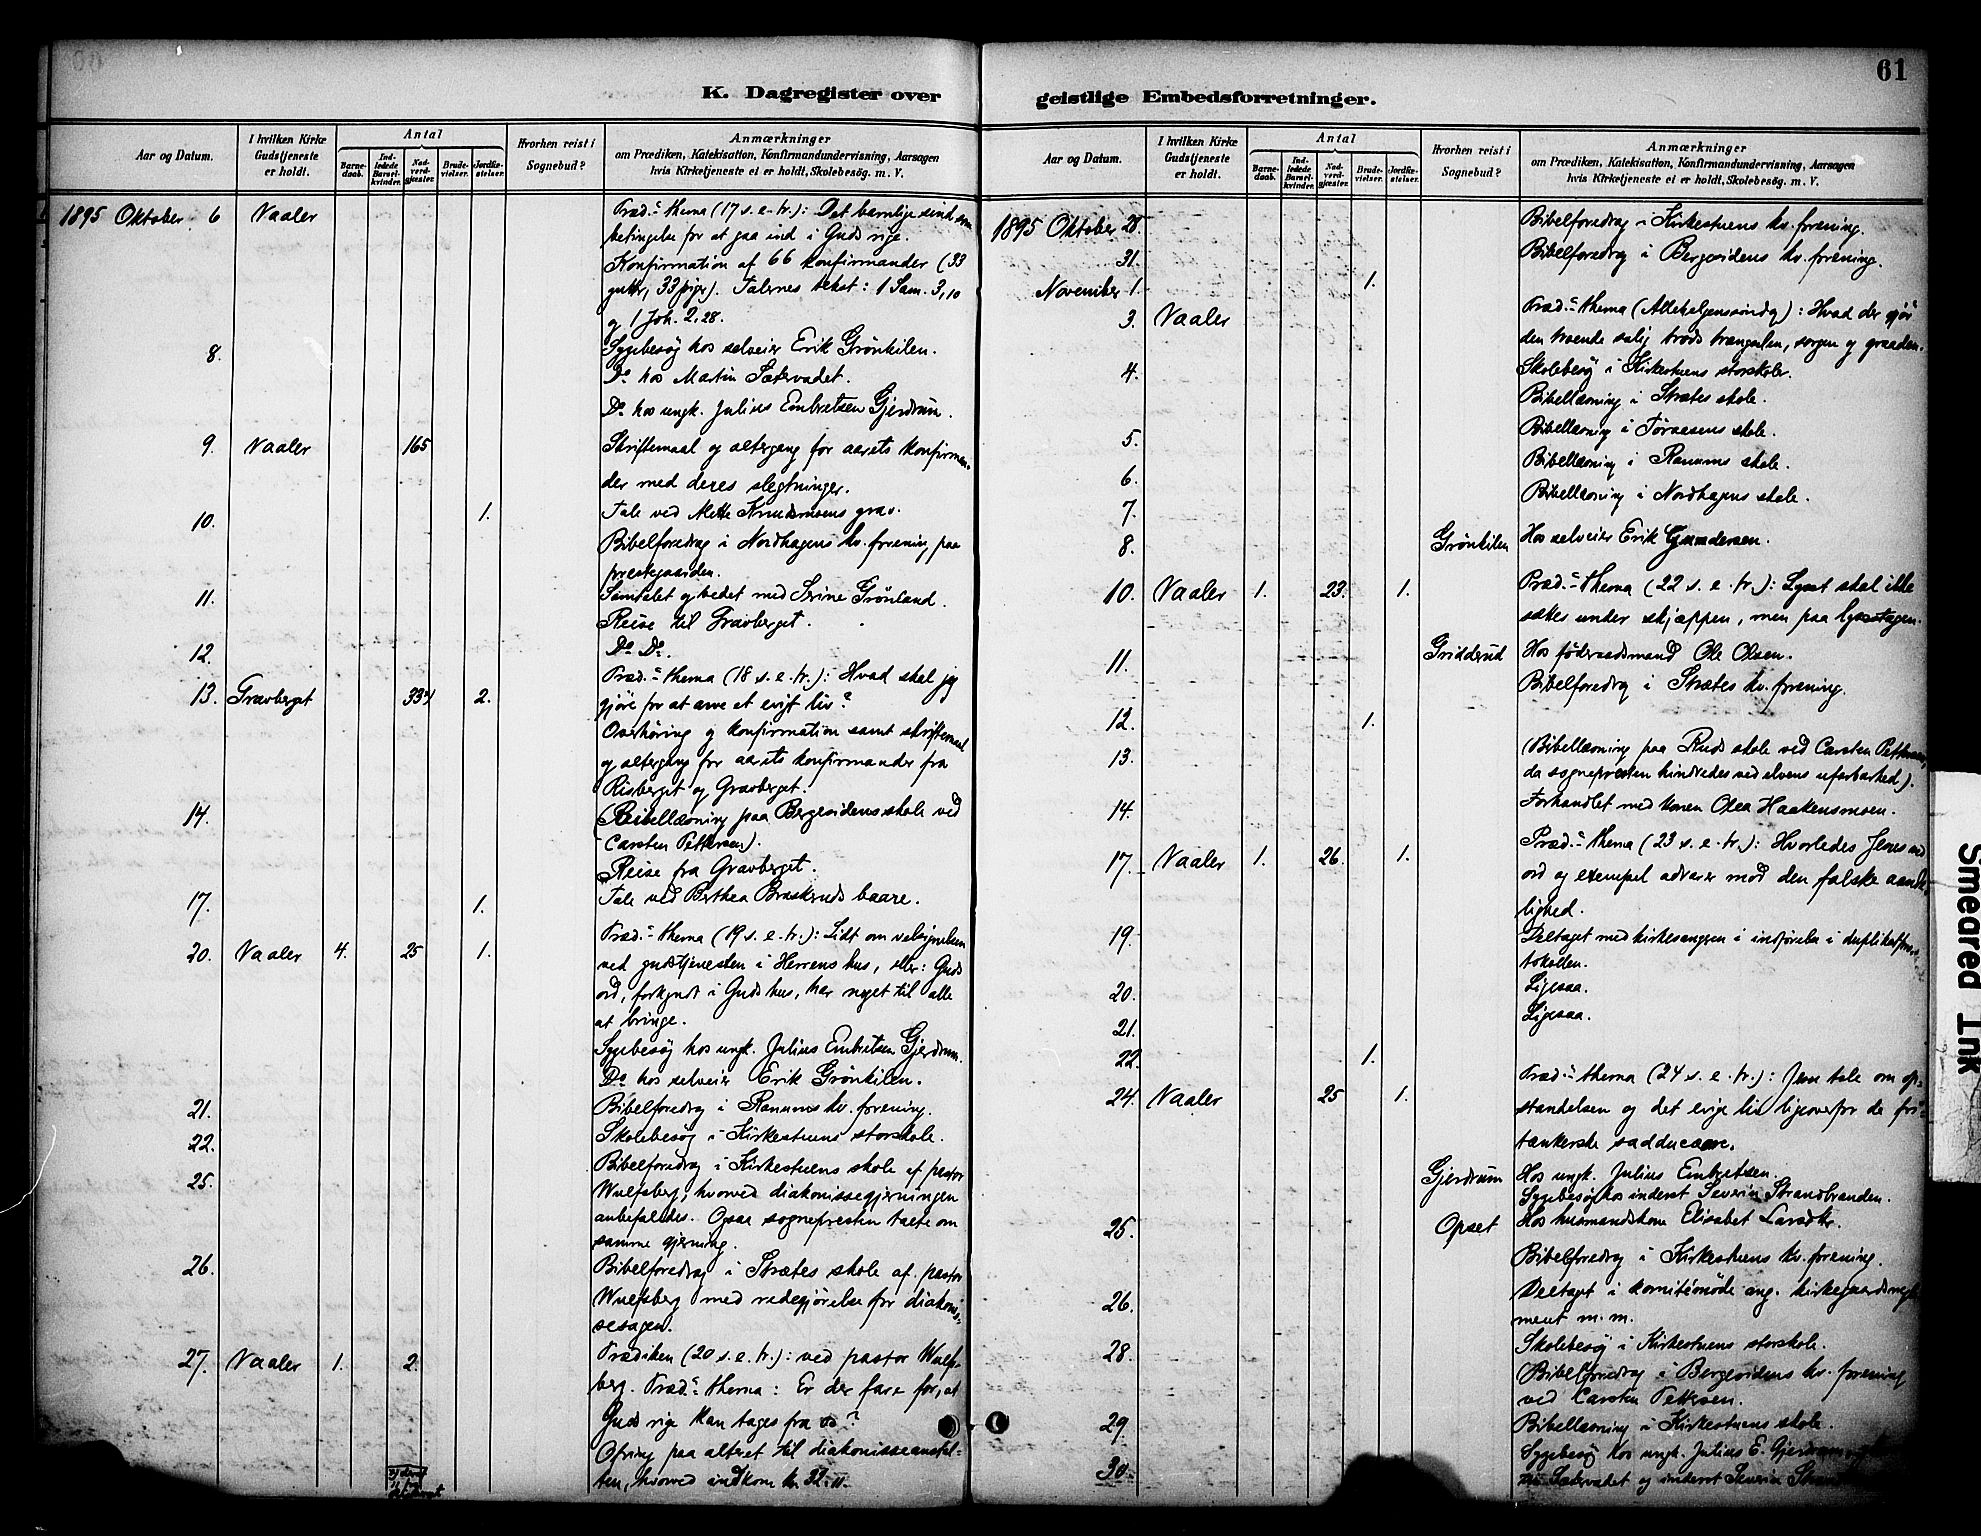 61
K. Dagregister over
Aar og Datum.
I hvilken Kirke Gudstjeneste er holdt.
Antal
Barnedaab.
Indledede Barselkvinder.
Nadverdgjæster.
Brudevielser.
Jordfæstelser.
Hvorhen reist i Sognebud?
Anmærkninger
om Prædiken, Katekisation, Konfirmandundervisning, Aarsagen
hvis Kirketjeneste ei er holdt, Skolebesøg. m. V.
1895 Oktober 6 Vaaler Præd.- thema (17 s. e. tr.): Det barnlige sind som
betingelse for at gaa ind i Guds rige.
Konfirmation af 66 konfirmander (33
gutter, 33 piger). Talernes tekst: 1 Sam. 3,10
og 1 Joh. 2,28.
8. Sygebesøg hos selveier Erik Grønkilen.
Do hos Martin Sætervadet.
Do hos ungk. Julius Embretsen Gjerdrum.
9. Vaaler 165 Skriftemaal og altergang for aarets konfirman-
der med deres slegtninger.
10. 1. Tale ved Mette Knudsmoens grav.
Bibelforedrag i Nordhagens kv. forening paa
prestegaarden.
11. Samtalet og bedet med Serine Grønland.
Reise til Gravberget.
12. Do Do.
13. Gravberget 33 2. Præd.- thema (18 s. e. tr.): Hvad skal jeg
gjøre for at arve et evigt liv?
Overhøring og konfirmation samt skriftemaal
og altergang for aarets konfirmander fra
Risberget og Gravberget.
14. (Bibellæsning paa Bergesidens skole ved
Carsten Pettersen).
Reise fra Gravberget.
17. 1. Tale ved Berthea Braskeruds baare.
20. Vaaler 4. 25 1. Præd.- thema (19 s. e. tr.): Lidt om velsignelsen
ved gudstjenesten i Herrens hus, eller: Guds
ord, forkyndt i Guds hus, har noget til alle
at bringe.
Sygebesøg hos ungk. Julius Embretsen Gjerdrum.
Do hos selveier Erik Grønkilen.
21. Bibelforedrag i Ranums kv. forening.
22. Skolebesøg i Kirkestuens storskole.
25. Bibelforedrag i Kirkestuens skole af pastor
Wulfsberg, hvorved diakonissegjerningen
anbefaledes. Ogsaa sognepresten talte om
samme gjerning.
26. Bibelforedrag i Strætes skole af pastor
Wulfsberg med redegjørelse for diakonis-
sesagen.
27. Vaaler 1. 2. Prædiken (20 s. e. tr.): ved pastor Wulfs-
berg. Præd.- thema: Er der fare for, at
Guds rige kan tages fra os?
Ofring paa alteret til diakonisseanstal-
ten, hvorved indkom kr. 32.11.
geistlige Embedsforretninger.
Aar og Datum.
I hvilken Kirke Gudstjeneste er holdt.
Antal
Barnedaab.
Indledede Barselkvinder.
Nadverdgjæster.
Brudevielser.
Jordfæstelser.
Hvorhen reist i Sognebud?
Anmærkninger
om Prædiken, Katekisation, Konfirmandundervisning, Aarsagen
hvis Kirketjeneste ei er holdt, Skolebesøg. m. V.
1895 Oktober 28. Bibelforedrag i Kirkestuens kv. forening.
31. Bibelforedrag i Bergesidens kv. forening.
November 1. 1.
3. Vaaler Præd.- thema (Allehelgenssøndag): Hvad der gjør
den troende salig trods trængselen, sorgen og graaden.
4. Skolebesøg i Kirkestuens storskole.
Bibellæsning i Strætes skole.
5. Bibellæsning i Toraasens skole.
6. Bibellæsning i Ranums skole.
7. Bibellæsning i Nordhagens skole.
8. Grønkilen Hos selveier Erik Gundersen.
10. Vaaler 1. 23. 1. Præd.- thema (22 s. e. tr.): Lyset skal ikke
sættes under skjæppen, men paa lysestagen.
11. Gridderud Hos føderaadsmand Ole Olsen.
Bibelforedrag i Strætes kv. forening.
12. 1.
13. (Bibellæsning paa Ruds skole ved Carsten Pettersen,
da sognepresten hindredes ved elvens ufarbarhed).
14. Forhandlet med konen Olea Haakensmoen.
17. Vaaler 1. 26. 1. Præd.- thema (23 s. e. tr.): Hvorledes Jesus ved
ord og exempel advarer mod den falske aande-
lighed.
19. Deltaget med kirkesangeren i indførelse i duplikatpro-
tokollen.
20. Ligesaa.
21. Ligesaa.
22. 1.
24. Vaaler 25 1. Præd.- thema (24 s. e. tr.): Jesu tale om op-
standelsen og det evige liv ligeoverfor de fri-
tænkerske sadducæere.
Gjerdrum Hos ungk. Julius Embretsen.
Sygebesøg hos inderst Severin Strandbranden.
25. Opset Hos husmandskone Elisabet Larsdtr.
Bibelforedrag i Kirkestuens kv. forening.
26. Deltaget i komitémøde ang. kirkegaardsregle-
ment m. m.
28. Skolebesøg i Kirkestuens storskole.
(Bibelforedrag i Bergesidens kv. forening
ved Carsten Pettersen.
29. Bibellæsning i Kirkestuens skole.
30. Sygebesøg hos ungk. Julius E. Gjerdrum
Sætervadet og inderst Severin
Smeared Ink